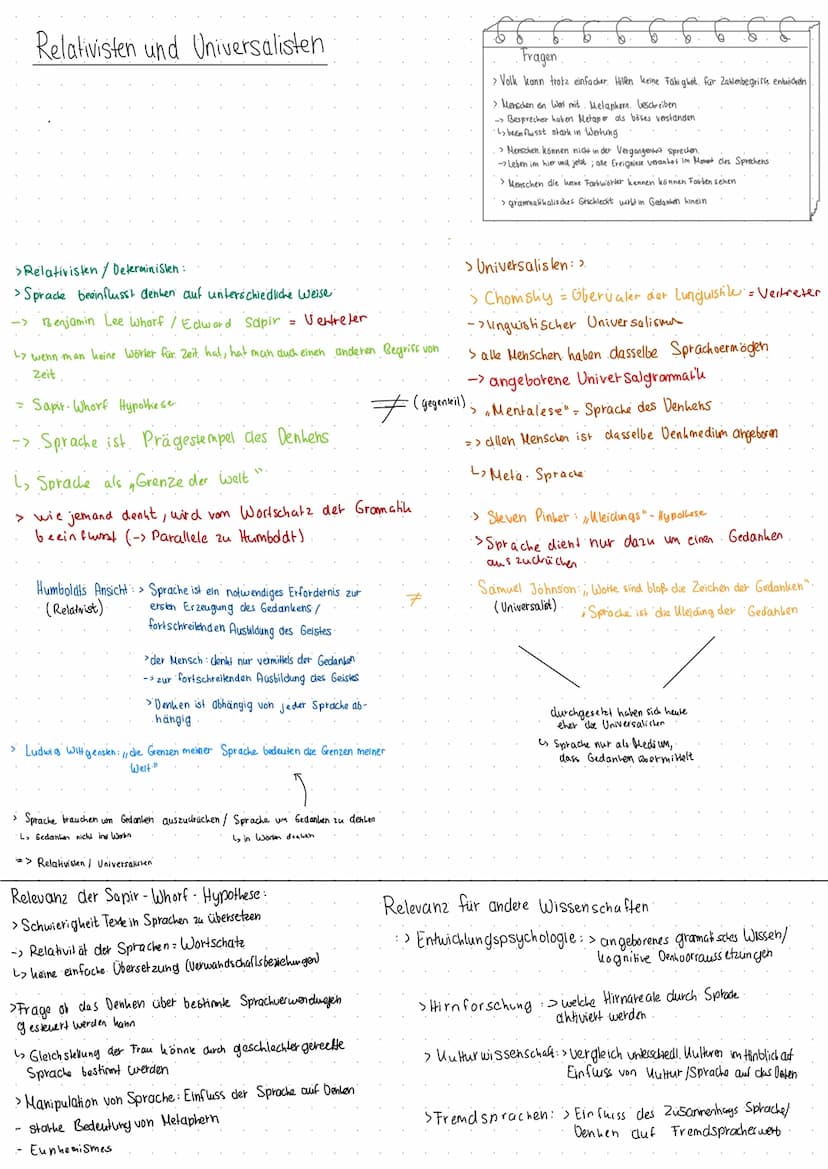 Relativisten und Universalisten
Fragen
> Volk kann trotz einfacher Hilfen keine Fähigkeit für Zahlenbegriffe entwickeln
> Menschen ein Wort mit Metaphern beschreiben
-> Besprecher haben Metaper als böses verstanden
↳ beeinflusst stark in Wertung
> Menschen können nicht in der Vergangenheit sprechen
-> Leben im hier und jetzt; alle Ereignisse verankert im Moment des Sprechens
> Menschen die keine Farbwörter kennen können Farben sehen
> grammatikalisches Geschlecht wirkt in Gedanken hinein
> Relativisten / Deterministen:
> Sprache beeinflusst denken auf unterschiedliche Weise
-> Benjamin Lee Whorf / Edward Sapir = Vertreter
↳ wenn man keine Wörter für Zeit hat, hat man auch einen anderen Begriff von
Zeit
= Sapir-Whorf Hypothese
-> Sprache ist Prägestempel des Denkens
↳ Sprache als „Grenze der Welt"
> wie jemand denkt, wird vom Wortschatz der Gramatik
beeinflusst (-> Parallele zu Humboldt)
≠ (gegenteil)
> Universalisten: >
> Chomsky = Übervater der Lunguistik = Vertreter
-> linguistischer Universalismus
> alle Menschen haben dasselbe Sprachvermögen
-> angeborene Universalgrammatik
> „Mentalese" = Sprache des Denkens
=> allen Menschen ist dasselbe Denkmedium angeboren
↳ Meta-Sprache
> Steven Pinker: „Kleidungs"-Hypothese
> Sprache dient nur dazu um einen Gedanken
auszudrücken
Humboldts Ansicht: > Sprache ist ein notwendiges Erfordernis zur
(Relativist) ersten Erzeugung des Gedankens /
fortschreitenden Ausbildung des Geistes
> der Mensch: denkt nur vermittels der Gedanken
-> zur fortschreitenden Ausbildung des Geistes
> Denken ist abhängig von jeder Sprache ab-
hängig
≠
Samuel Johnson: „Worte sind bloß die Zeichen der Gedanken"
(Universalist) ; Sprache ist die Kleidung der Gedanken
durchgesetzt haben sich heute
eher die Universalisten
↳ Sprache nur als Medium,
dass Gedanken übermittelt
> Ludwig Wittgenstein: „die Grenzen meiner Sprache bedeuten die Grenzen meiner
Welt"
> Sprache brauchen um Gedanken auszudrücken / Sprache um Gedanken zu denken
↳ Gedanken nicht in Worten ↳ in Worten denken
=> Relativisten / Universalisten
Relevanz der Sapir-Whorf-Hypothese:
> Schwierigkeit Texte in Sprachen zu übersetzen
-> Relativität der Sprachen = Wortschatz
↳ keine einfache Übersetzung (Verwandschaftsbeziehungen)
> Frage ob das Denken über bestimmte Sprachverwendungen
gesteuert werden kann
↳ Gleichstellung der Frau könnte durch geschlechtergerechte
Sprache bestimmt werden
> Manipulation von Sprache: Einfluss der Sprache auf Denken
- starke Bedeutung von Metaphern
- Euphemismes
Relevanz für andere Wissenschaften
:> Entwicklungspsychologie: > angeborenes gramatisches Wissen/
kognitive Denkvorraussetzungen
> Hirnforschung: > welche Hirnareale durch Sprache
aktiviert werden
> Kulturwissenschaft: > Vergleich unterschiedl. Kulturen im Hinblick auf
Einfluss von Kultur/Sprache auf das Denken
> Fremdsprachen: > Einfluss des Zusammenhangs Sprache/
Denken auf Fremdspracherwerb